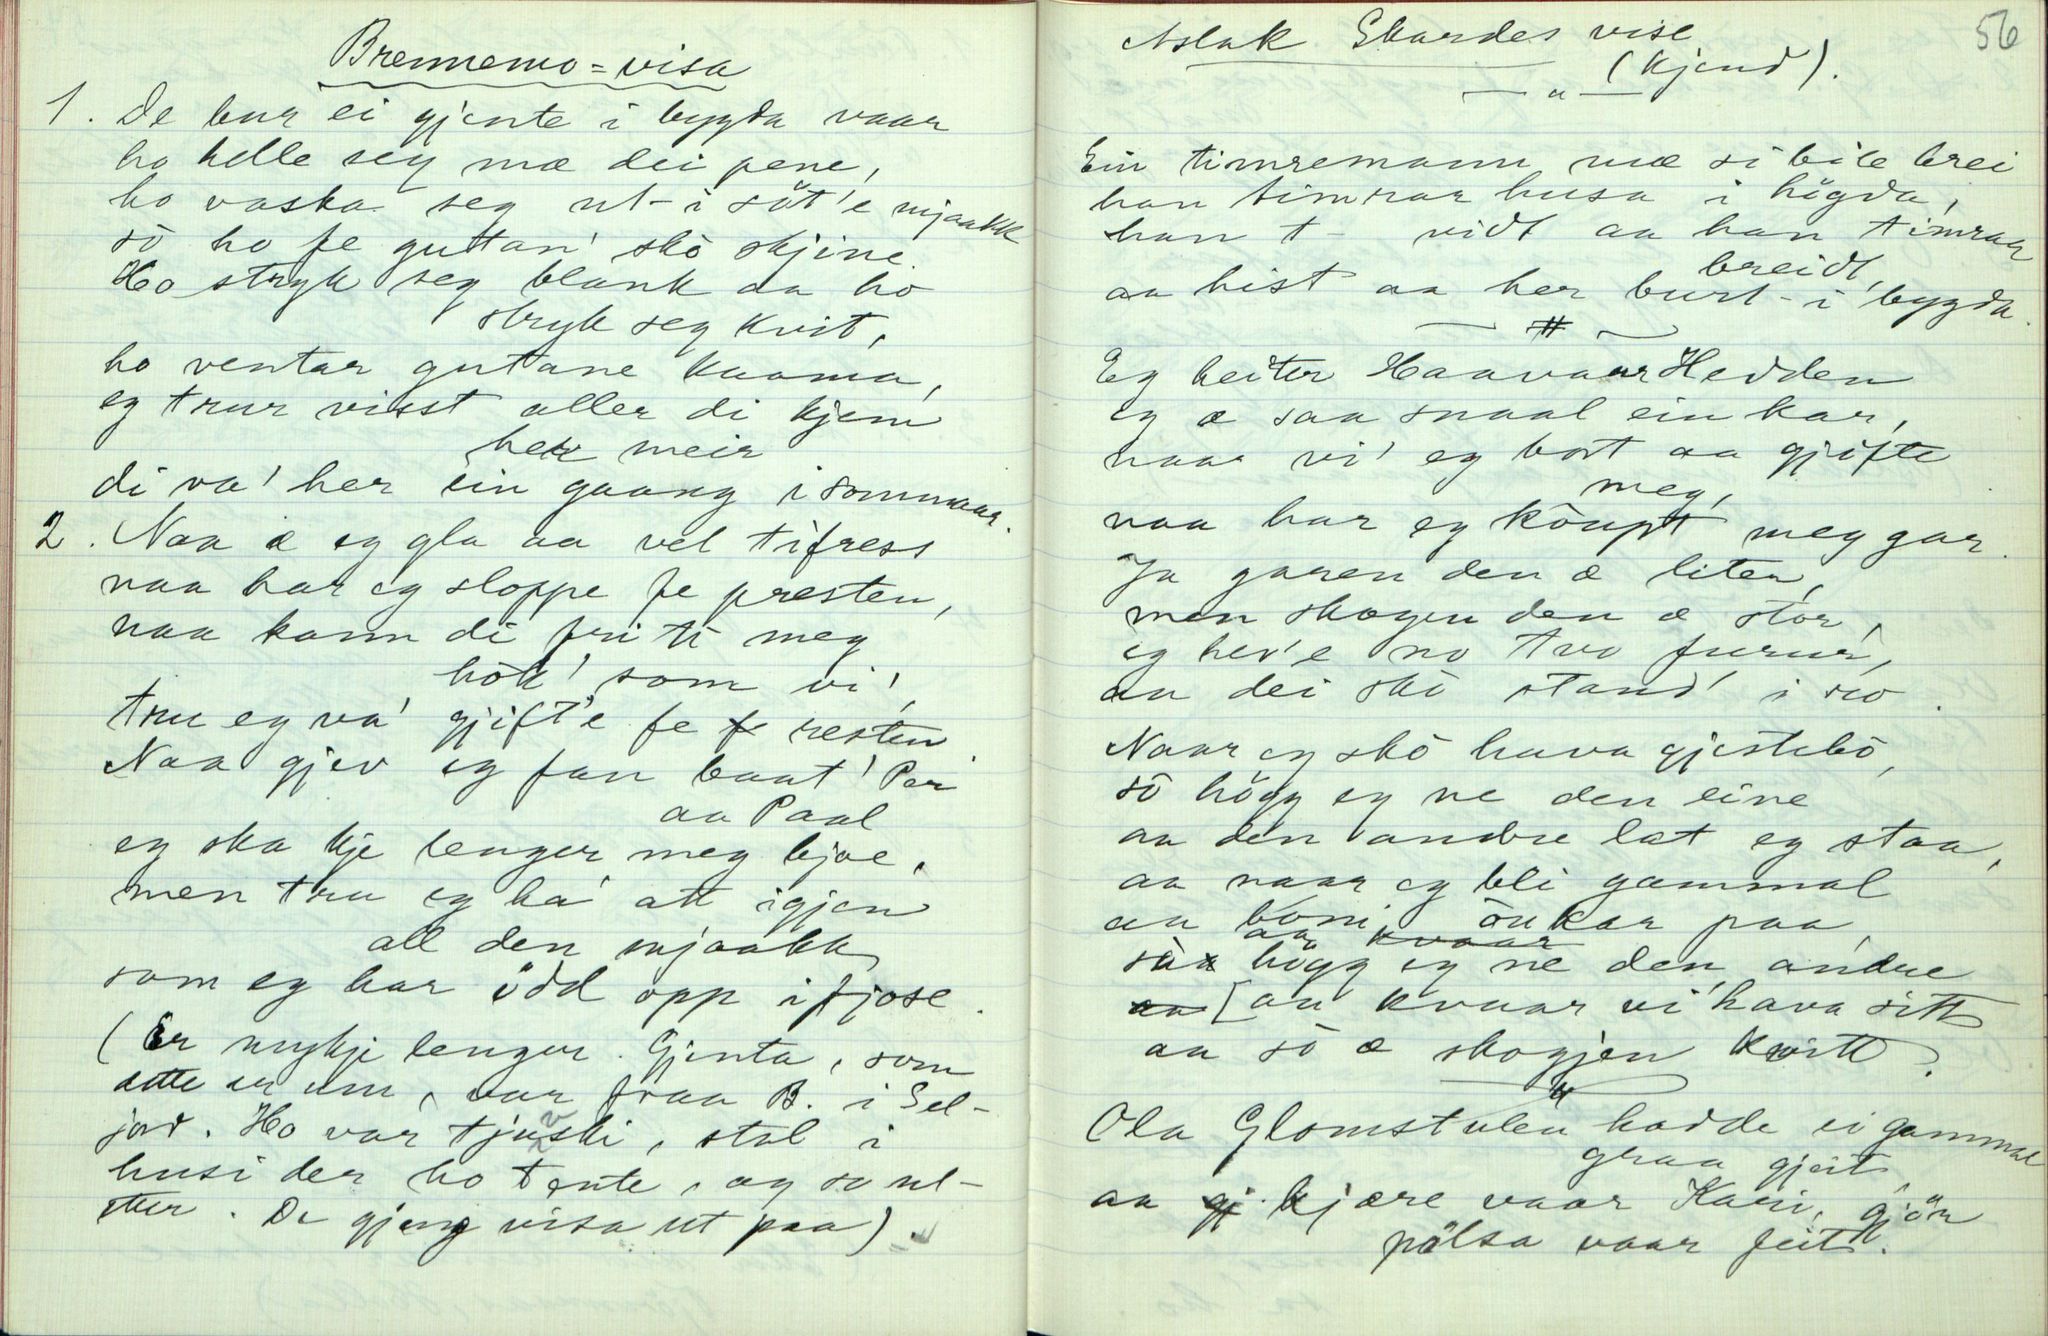 Brennemo=visa
1. De bur ei gjente i bygda vaar
ho helle seg mæ dei pene,
ho vaska seg ut-i söt'e mjaakk
sò ho fe gutan' skò skjine.
Ho stryk seg blank aa ho
stryk seg kvit,
ho ventar gutane kaama,
eg trur visst aller di kjem
her meir
di va' her ein gaang i sommaar.
2. Naa æ eg gla aa vel tifress
naa har eg sloppe fe presten,
naa kann di fri ti meg
hòk' som vi',
tru eg va' gjift'e fe resten.
Naa gjev eg fan baat' Per
aa Paal
eg ska kje lenger meg bjoe,
men tru eg ha' att igjen
all den mjaakk
som eg har ödd opp i fjose.
(Er mykje lenger. Gjenta, som
dette er um, var fraa B. i Sel-
jord. Ho var tjuvski, stal i
husi der ho tente, og so ut-
etter. De gjeng visa ut paa)
56
Aslak Skardes vise
(kjend).
— " —
Ein timremann mæ si bile brei
han timrar husa i högda,
han t- vidt aa han timrar
breidt,
aa hist aa her burt-i bygda.
— " —
Eg heiter Haavaar Hedden
eg æ saa snaal ein kar,
naar vi' eg bort aa gjifte
meg,
naa har eg kòupt meg gar.
Ja garen den æ liten,
men skogen den æ stor,
eg hev'e no tvo furur,
aa dei skò stand' i sno.
Naar eg skò hava gjestebò,
sò högg eg ne den eine
aa den andre lat eg staa,
aa naar eg bli gammal
aa böni òukar paa,
aa kvaar
sò högg eg ne den andre
[aa kvaar vi' hava sitt
aa sò æ skogjen kvitt.
"
Ola Glomstulen hadde ei gammal
graa gjeit
aa kjære vaar Kari, gjör
pölsa vaar feit.